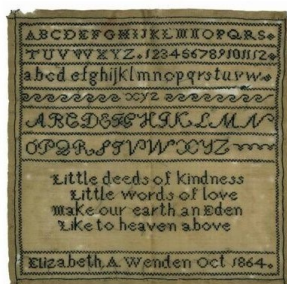 ABCDEFGHIJKLMNOPQRS
TUVWXYZ. 123456789101112
abcdefghijklmnopqrstuvw
xyz
ABCDEFGHIJKLMN
OPQRSTVWXYZ
Little deeds of kindness
Little words of love
Make our earth an Eden
Like to heaven above
Elizabeth A Wenden Oct 1864.